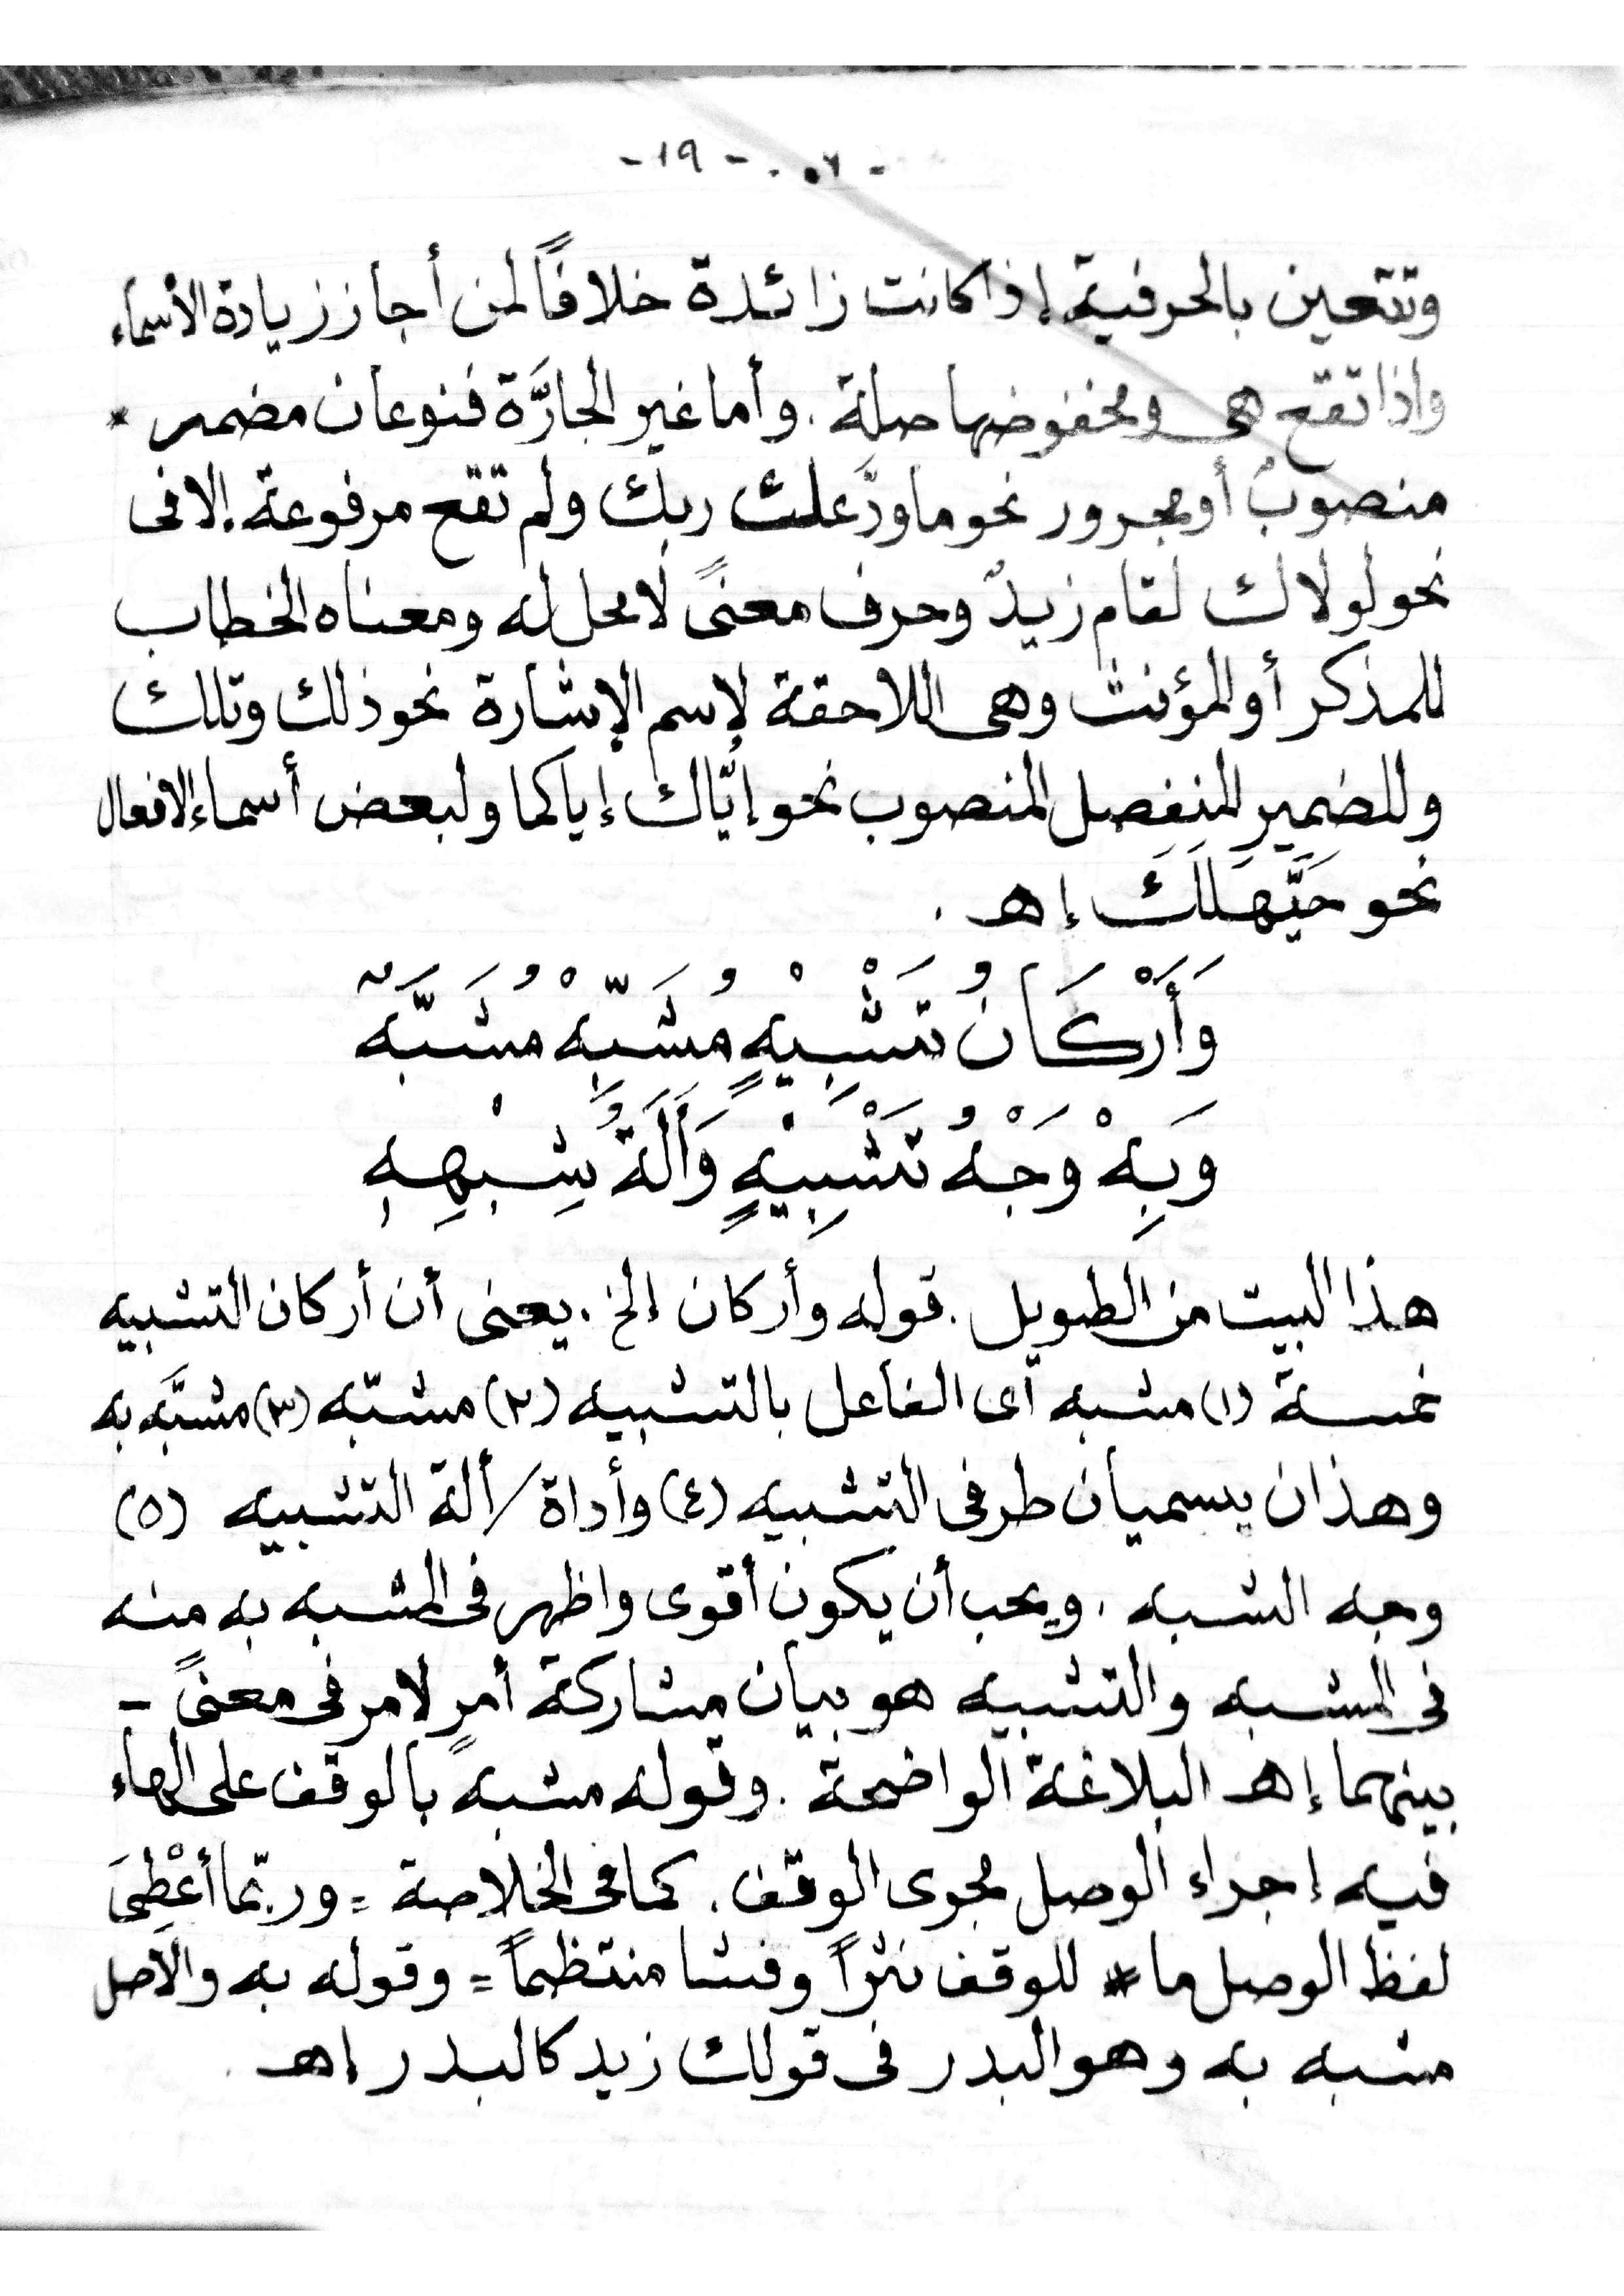 - ١٩ -
وتتعين بالحرفية إذا كانت زائدة خلافاً لمن أجاز زيادة الأسماء
واذا تقع هى ومخفوضها صلة . وأما غير الجارَّة فنوعان مضمر *
منصوبٌ أو مجرور نحو ما ودّعك ربك ولم تقع مرفوعة إلا فى
نحو لولاك لقام زيدٌ وحرف معنىً لا محل له ومعناه الخطاب
للمذكر أو المؤنث وهى اللاحقة لإسم الإشارة نحو ذلك وتلك
وللضمير المنفصل المنصوب نحو إيّاك إياكما ولبعض أسماء الافعال
نحو حَيَّهَلَكَ إهـ .
وَأَرْكَانُ تَشْبِيْهٍ مُشَبِّهْ مُشَبَّهٌ
وَبِهْ وَجْهُ تَشْبِيْهٍ وَأَلَةُ شِبْهِهِ
هذا البيت من الطويل . قوله وأركان إلخ . يعنى أن أركان التشبيه
خمسة (١) مشبه أى الفاعل بالتشبيه (٢) مشبّه (٣) مشبَّه به
وهذان يسميان طرفى التشبيه (٤) وأداة / ألة التشبيه (٥)
وجه الشبه . ويجب أن يكون أقوى واظهر فى المشبه به منه
فى المشبه والتشبيه هو بيان مشاركة أمرٍ لامر فى معنىً -
بينهما إهـ البلاغة الواضحة . وقوله مشبه بالوقف على الهاء
فيه إجراء الوصل مجرى الوقف . كما فى الخلاصة = وربّما أعْطِىَ
لفظ الوصل ما * للوقف نثراً وفشا منتظماً = وقوله به والأصل
مشبه به وهو البدر فى قولك زيد كالبدر إهـ .